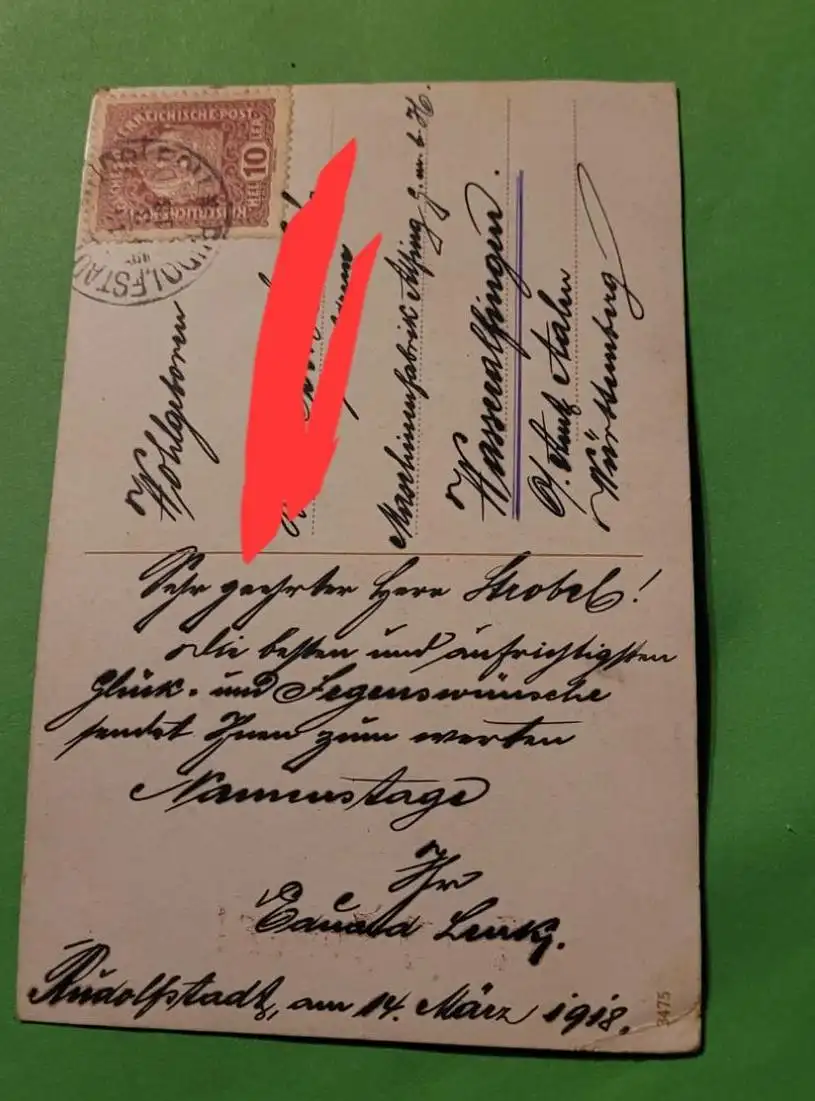 ÖSTERREICHISCHE POST
10
HELLER
KAISERLICHE KÖNIGLICHE
RUDOLFSTADT
Wohlgeboren
Maschinenfabrik Alfing G.m.b.H.
Wasseralfingen.
Württemberg
Sehr geehrter Herr Strobel!
Die besten und aufrichtigsten
Glück- und Segenswünsche
sendet Ihnen zum werten
Namenstage
Ihr
Eduard
Rudolfstadt, am 14. März 1918.
3475